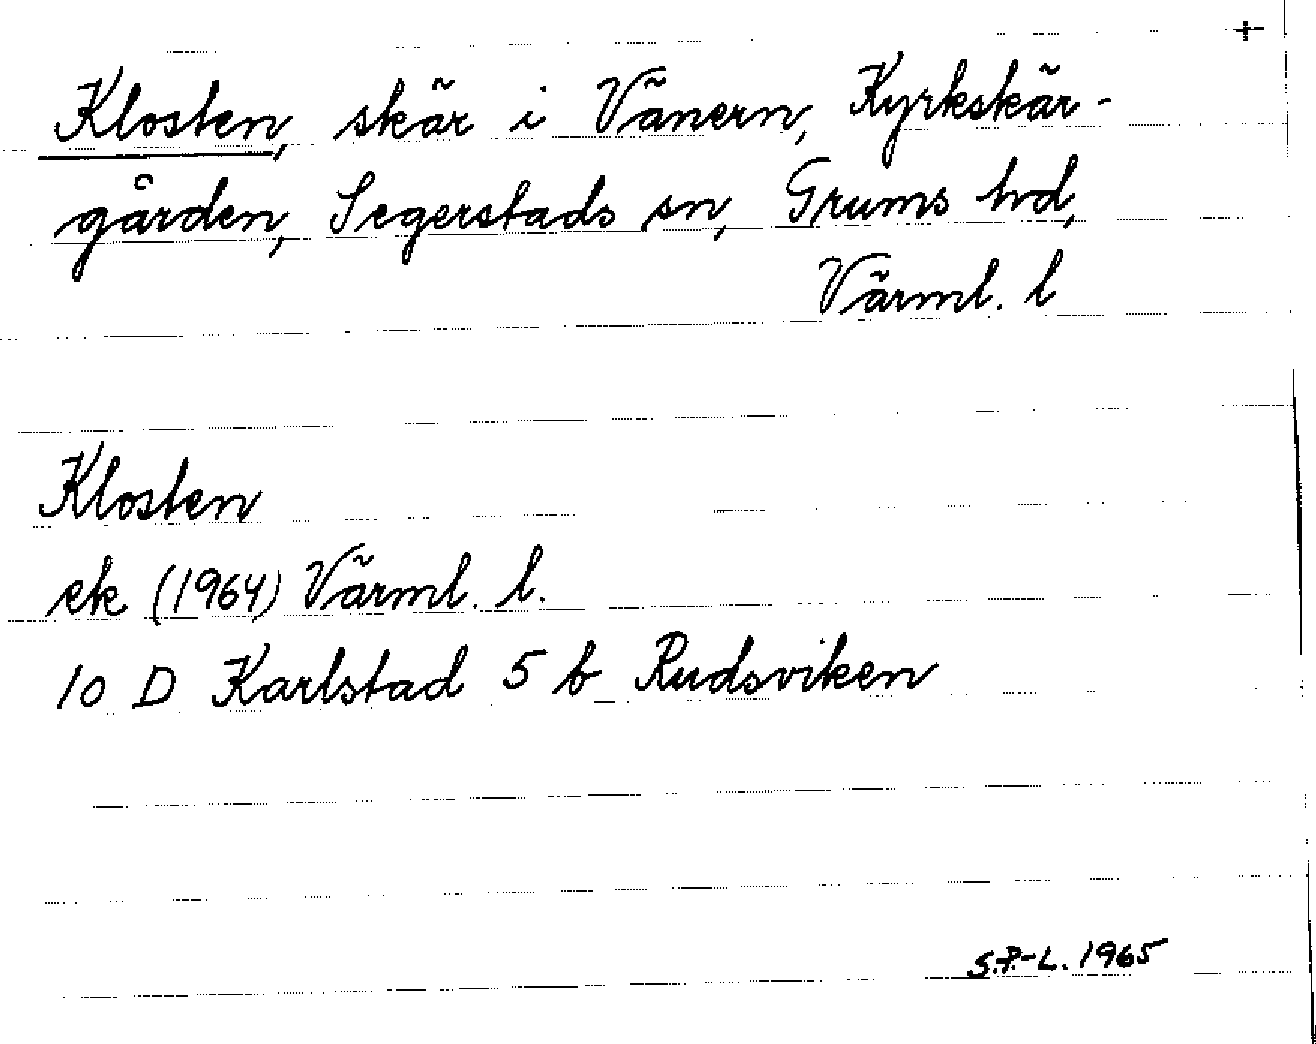 +
Klosten, skär i Vänern, Kyrkskär-
gården, Segerstads sn, Grums hd,
Värml. l
Klosten
ek (1964) Värml. l.
10 D Karlstad 5 b Rudsviken
S.P.-L. 1965